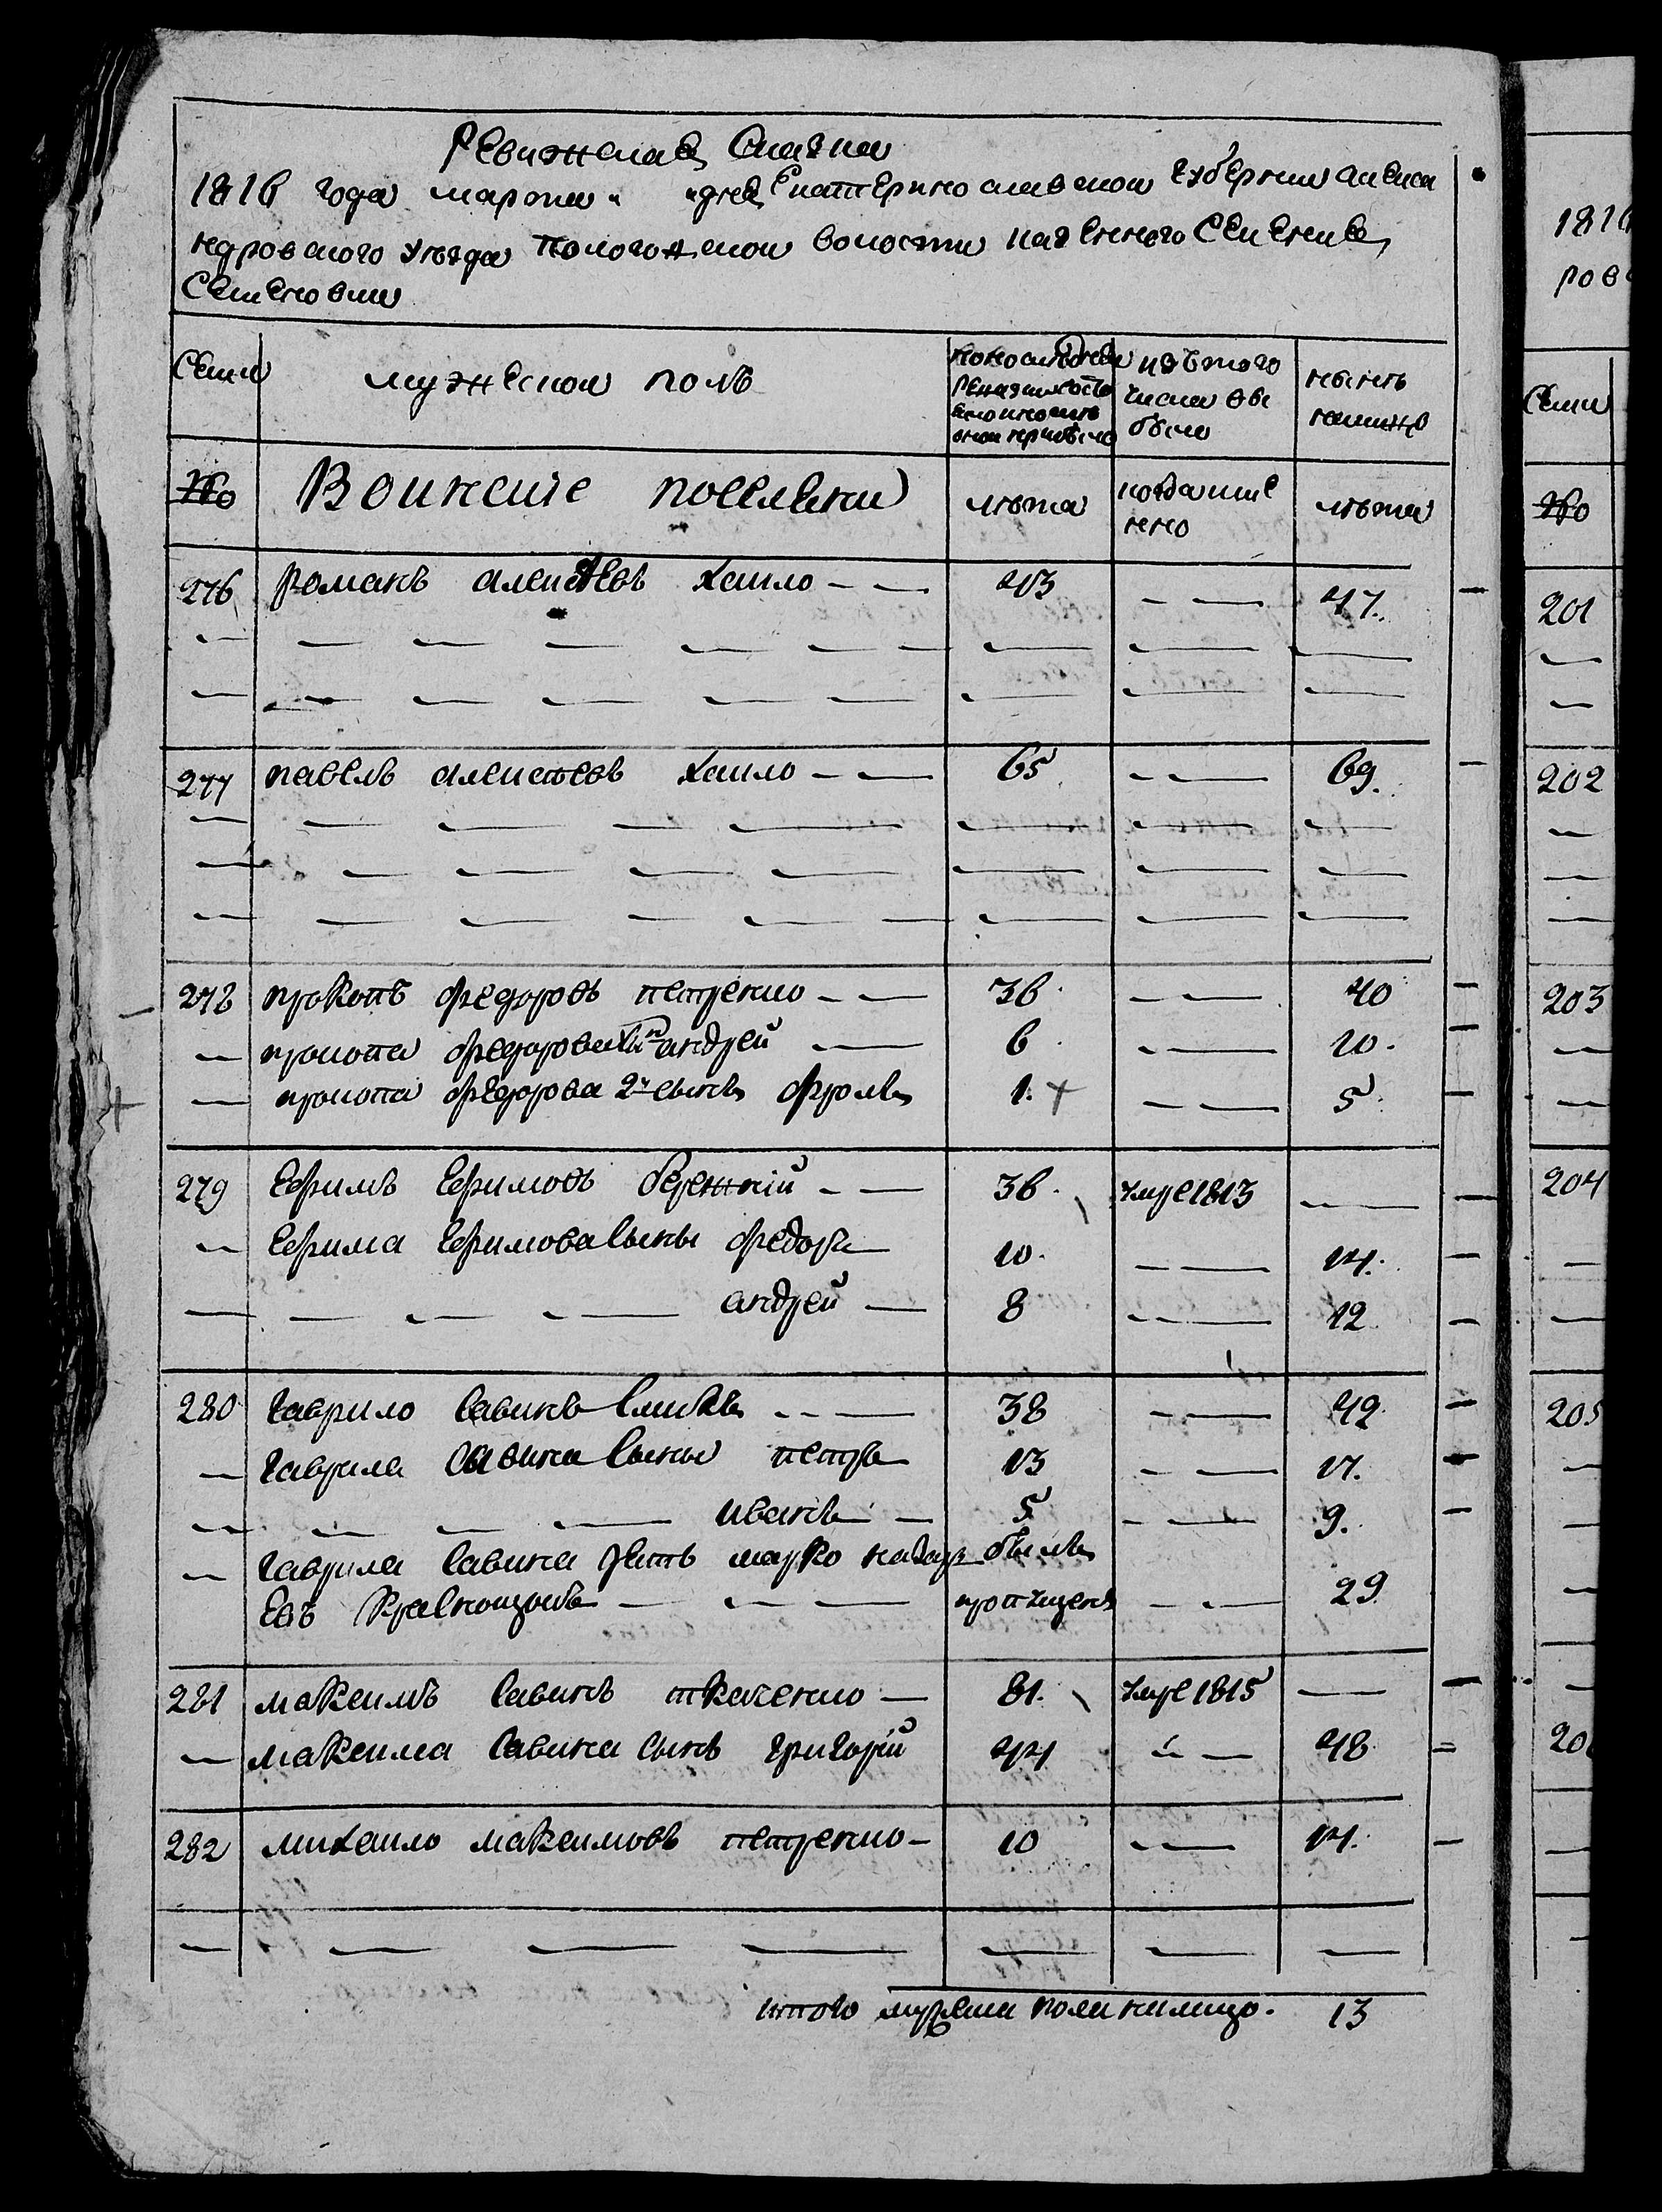 Ревижская Сказка
1816 года марта " " дня Екатеринославской губернии Алекса
ндровского уезда Пологожской волости казенного Селения
Семеновки
Семьи мужеской полъ изъ того числа выбыло ныне налицо
№о Воинские поселяни лета когда име
нно лета
276 Романъ Алексеевъ Хаило — — 43 — — 47.
277 Павелъ Алексеевъ Хаило — — 65 — — 69.
278 Прокопъ Федоровъ Петренко — — 36. — — 40
— Прокопа Федорова сынъ Андрей — 6. — — 10.
— Прокопа Федорова 2й сынъ Фролъ 1. + — — 5.
279 Ефимъ Ефимовъ Бережний — — 36. умре 1813 —
— Ефима Ефимова сыны Федоръ 10. — — 14.
— — — — Андрей — 8 — — 12
280 Гаврило Савинъ — — 38 — — 42
— Гаврила Савина сыны Петръ 13 — — 17.
— — — — Иванъ — 5 — — 9.
— Гаврила Савина зять Марко Назар былъ
евъ — — — пропущенъ — — 29
281 Максимъ Савинъ Ткаченко — 81. умре 1815 —
— Максима Савина сынъ Григорий 44 — — 48
282 Михаило Максимовъ Петренко — 10 — — 14.
— — — — — — —
итого мужеска пола налицо. 13
1816
ров
Семьи
№о
201
202
203
204
205
20